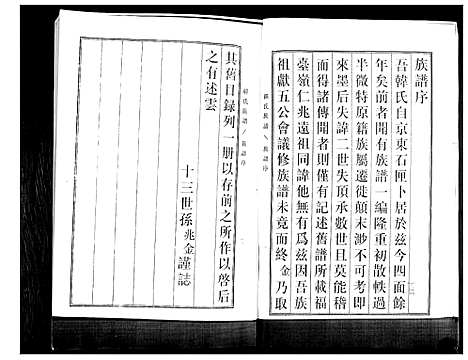 族譜序
吾韓氏自京東石匣卜居於茲今四面餘
年矣前者聞有族譜一編隆重初散軼過
半微特原籍族屬遷徙顛末涉不可考即
來墨后失諱二世失頂承數世且莫能稽
而得諸傳聞者則僅有記述舊譜所載福
臺嶺仁兆遠祖同諱他無有爲茲因吾族
祖獻五公會議修族譜未竟而終金乃取
韓氏族譜
族譜序
韓氏族譜
族譜序
其舊目録列一册以存前之所作以啓后
之有述雲
十三世孫兆金謹誌